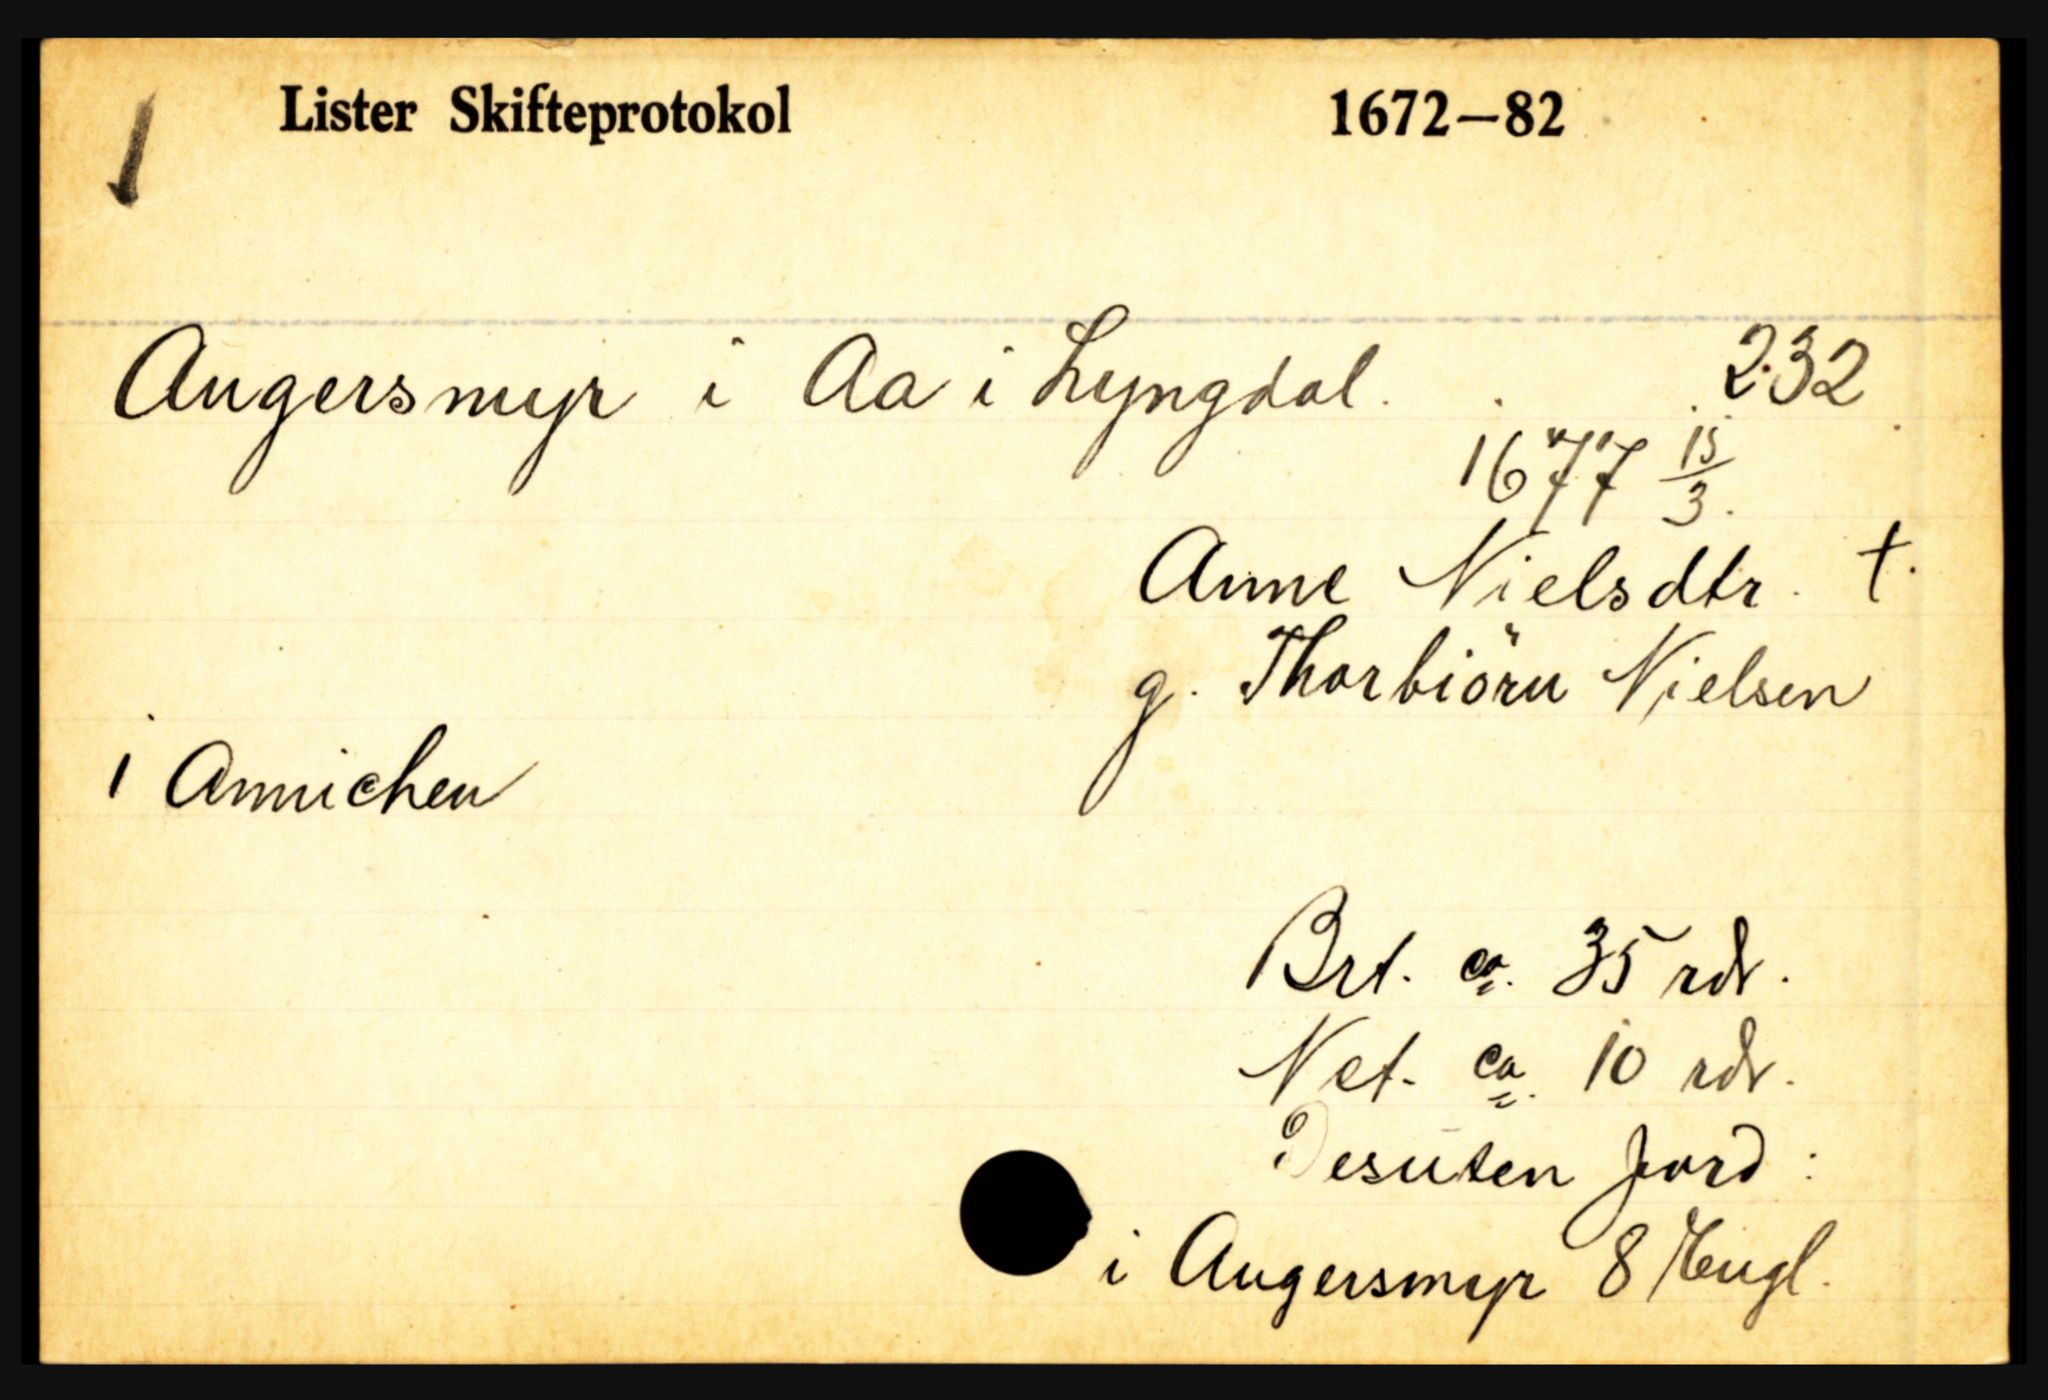 Lister Skifteprotokol 1672—82
Angersmyr i Aa i Lyngdal. 232
1677 15/3.
Anne Nielsdtr. †.
g. Thorbiörn Nielsen
1 Annichen
Brt. ca. 35 rdr.
Net. ca. 10 rdr.
Desuten jord:
i Angersmyr 8 Engl.